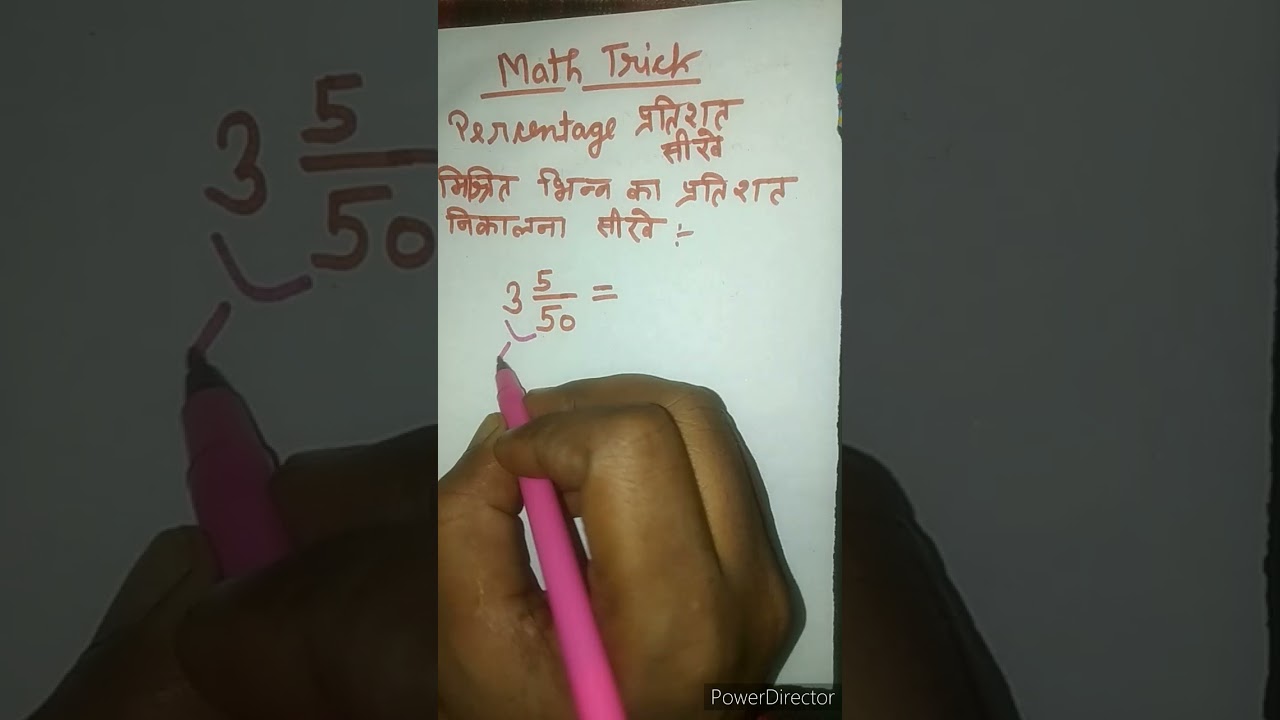 Math Trick
Percentage प्रतिशत
सीखे
मिश्रित भिन्न का प्रतिशत
निकालना सीखे :-
3 5/50 =
PowerDirector